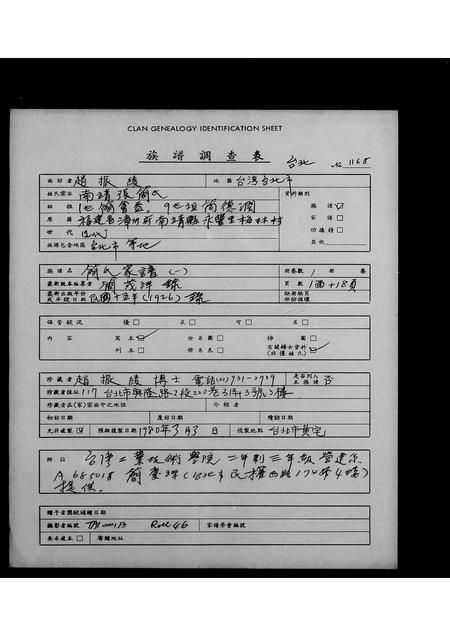 CLAN GENEALOGY IDENTIFICATION SHEET
族譜調查表
台北 No 1168
面訪者 趙振績 地區 台灣台北市
姓氏宗派 南靖張簡氏 資料類別
始祖 1世簡會益。9世祖簡德潤 族譜
原籍 福建省漳州府南靖縣永豐里梅林村 家譜
世代 功德榜
族譜包含地區 台北市等地 其他
族譜名 簡氏家譜(一) 冊卷數 1冊 卷
最新版本編著者 簡茂祥 錄 頁數 1面+18頁
最新出版年份或年段日期 民國十五年(1926)錄 缺冊缺頁部份損壞
保管狀況 優 良 可 否
內容 寫本 世系圖 神圖
刊本 世系表 有關婦女資料(非僅姓氏)
珍藏者 趙振績博士 電話(02)931-2739 是否列入本族譜 否
珍藏者住址 117台北市興隆路2段220巷3弄43號3樓
珍藏者在(家)家族中之地位 介紹者
初訪日期 復訪日期 續訪日期
允許複製 預拟複製日期 1980年3月3日 複製地點 台北市黃宅
附註 台灣工業技術學院二年制三年級營建系
A685018 簡慶祥(台北市民權西路174巷4樓)
提供。
贈予者獎狀頒贈日期
攝影者編號 Roll 46 家譜學會編號
要求邊本 寄贈地址